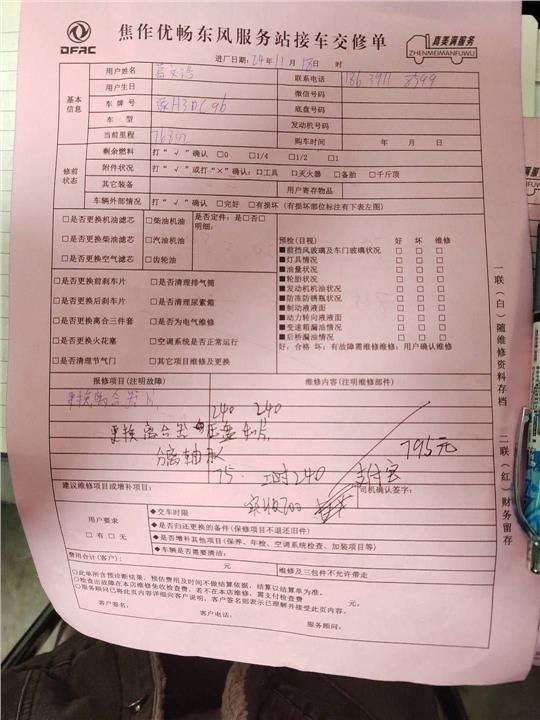 DFAC
焦作优畅东风服务站接车交修单
真美满服务
ZHENMEIMANFUWU
进厂日期：24年11月18日 时
基本信息
用户姓名
联系电话
用户生日
微信号码
车牌号 豫H3DC96
底盘号码
车型
发动机号码
当前里程
购车时间 年 月 日
修前状态
剩余燃料 打“√”确认 □0 □1/4 □1/2 □1
附件状况 打“√”或打“×”确认：□工具 □灭火器 □备胎 □千斤顶
其它装备 用户寄存物品
车辆外部情况 打“√”确认 □完好 □有损坏（有损坏部位标注有下表左图）
□是否更换机油滤芯 □柴油机油 是否定件：是□否□
□是否更换柴油滤芯 □汽油机油 明细：
□是否更换空气滤芯 □齿轮油
□是否更换前刹车片 □是否清理排气筒
□是否更换后刹车片 □是否清理尿素箱
□是否更换离合三件套 □是否为电气维修
□是否更换火花塞 □空调系统是否正常运行
□是否清理节气门 □其它项目维修及更换
预检(目视) 好 坏 维修
■前挡风玻璃及车门玻璃状况 □ □ □
■灯具情况 □ □ □
■油量状况 □ □ □
■轮胎状况 □ □ □
■发动机机油状况 □ □ □
■防冻防锈瓶状况 □ □ □
■制动液液面 □ □ □
■动力转向液液面 □ □ □
■变速箱漏油情况 □ □ □
■后桥漏油情况 □ □ □
好：合格 坏：有故障需维修维修：用户确认维修
报修项目(注明故障) 维修内容(注明维修部件)
更换离合器片
240 240
更换离合器压盘和片
分离轴承
795元
75. 工时240 支付宝
实收700
建议维修项目或增补项目：
司机确认签字：
用户要求
□有 □无
◆交车时限
◆是否归还更换的备件(保修项目不退还旧件)
◆是否增补其他项目(保养、年检、空调系统检查、加装项目等)
◆车辆是否需要清洁：
费用合计(客户)： 元 维修及三包件不允许带走
○此单所含预诊断结果，预估费用及时间不做结算依据，结算以结算单为准。
○检查出故障在本店维修免收检查费，若不在本店维修，需支付检查费 元。
○服务顾问已将此页内容详细向客户说明，客户签名则表示已理解并接受此页内容。
客户签名： 客户电话： 服务顾问：
一联（白）随维修资料存档
二联（红）财务留存